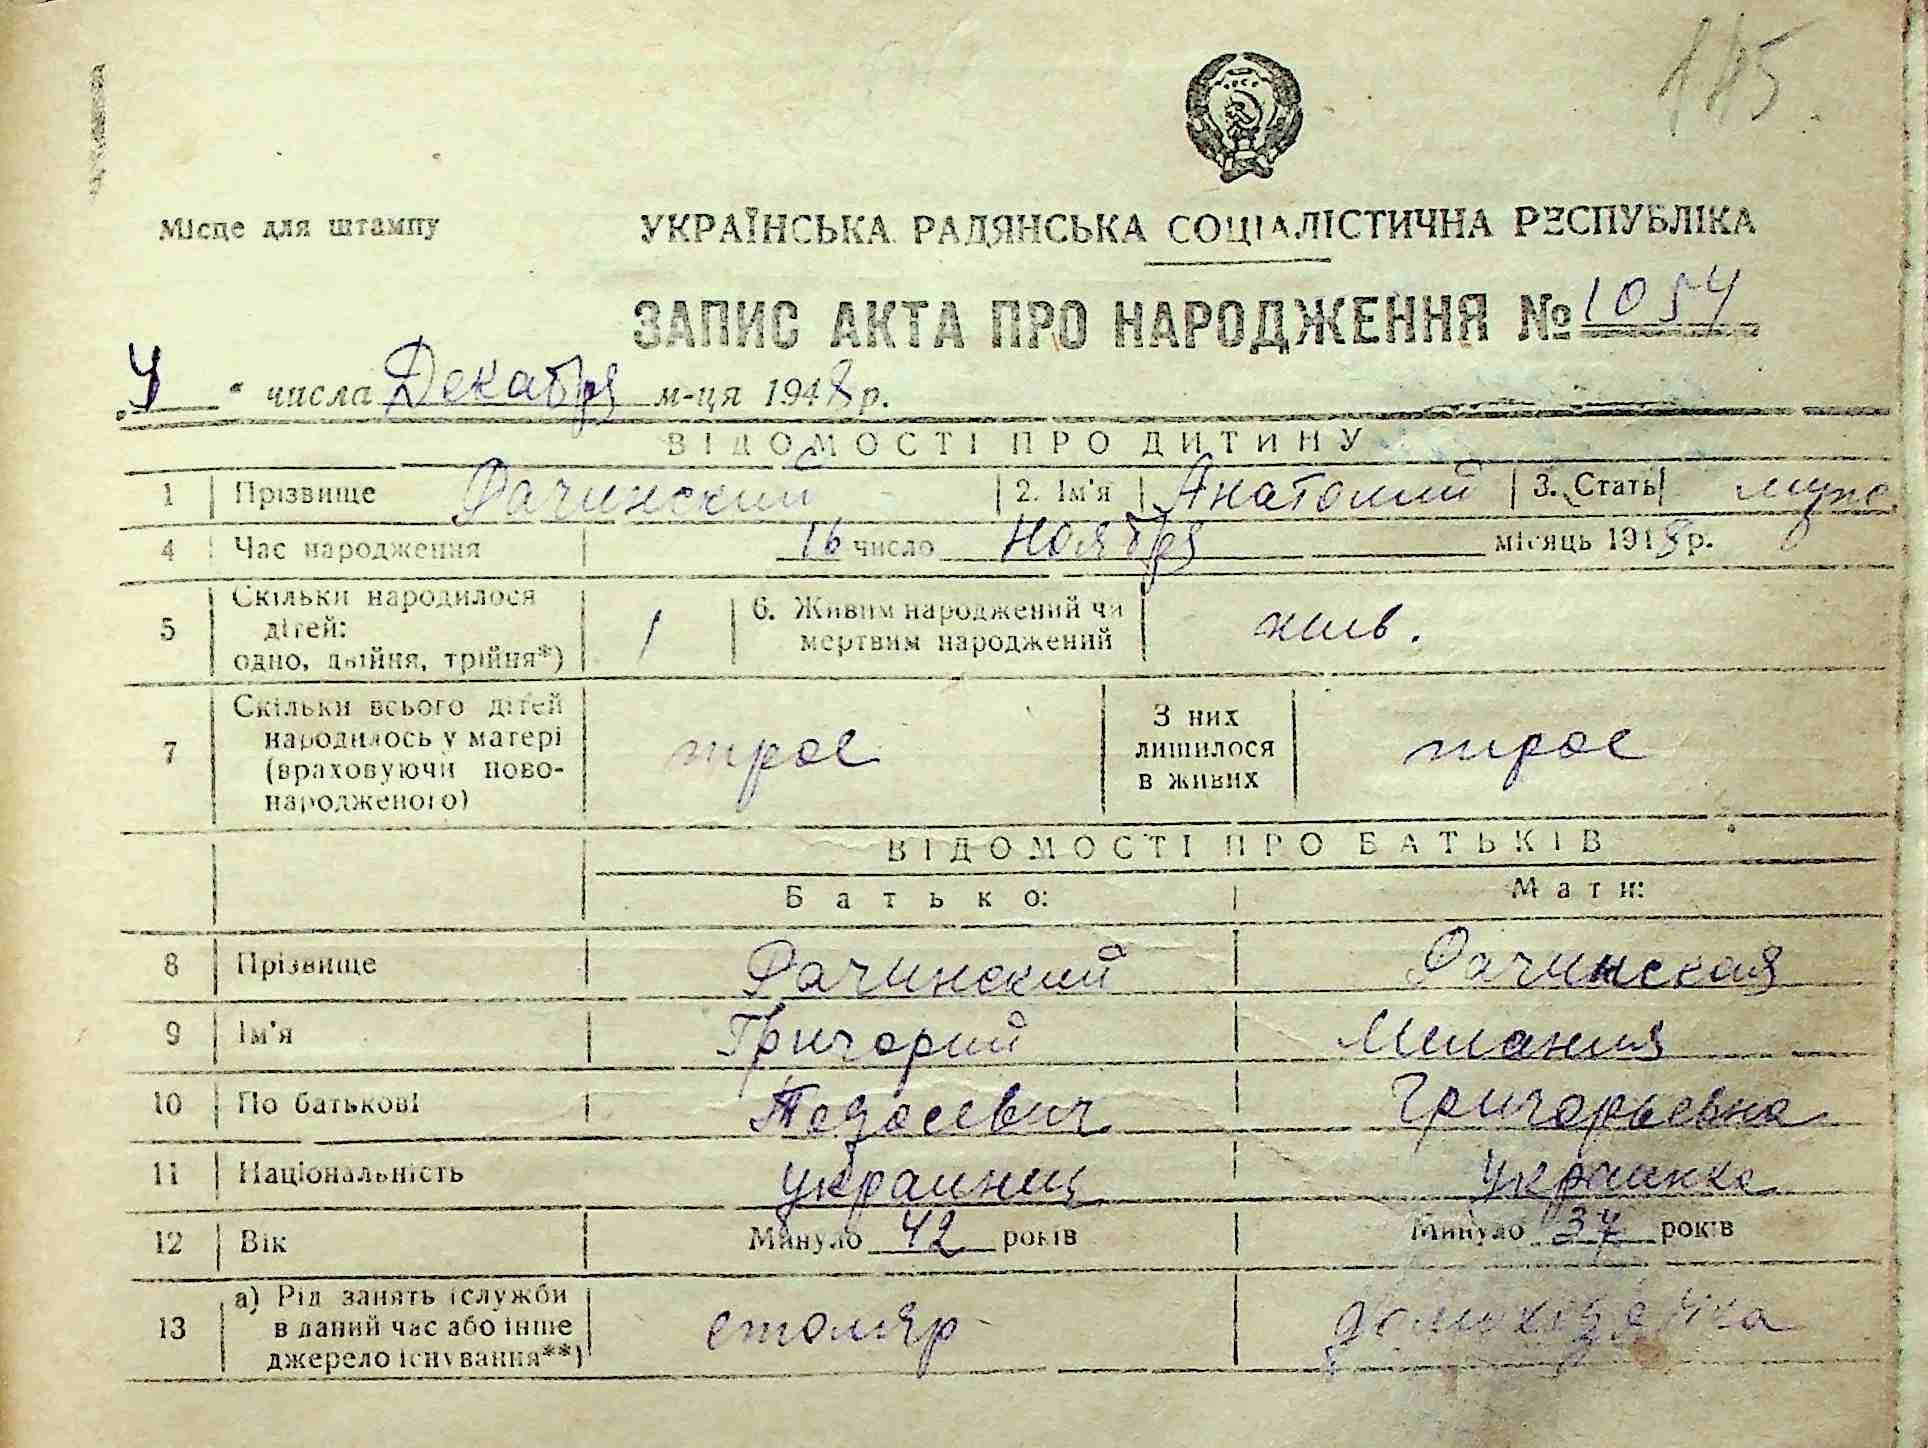 185.
Місце для штампу
УКРАЇНСЬКА РАДЯНСЬКА СОЦІАЛІСТИЧНА РЕСПУБЛІКА
ЗАПИС АКТА ПРО НАРОДЖЕННЯ № 1054
„4“ числа Декабря м-ця 1948 р.
ВІДОМОСТІ ПРО ДИТИНУ
1 Прізвище Рачинский 2. Ім'я Анатолий 3. Стать муж.
4 Час народження 16 число Ноября місяць 1948 р.
5 Скільки народилося
дітей:
одно, двійня, трійня*) 1 6. Живим народжений чи
мертвим народжений жив.
7 Скільки всього дітей
народилось у матері
(враховуючи ново-
народженого) трое З них
лишилося
в живих трое
ВІДОМОСТІ ПРО БАТЬКІВ
Батько: Мати:
8 Прізвище Рачинский Рачинская
9 Ім'я Григорий Мелания
10 По батькові Тодосевич Григорьевна
11 Національність украинец украинка
12 Вік Минуло 42 років Минуло 37 років
13 а) Рід занять (служби
в даний час або інше
джерело існування**) столяр домохозяйка